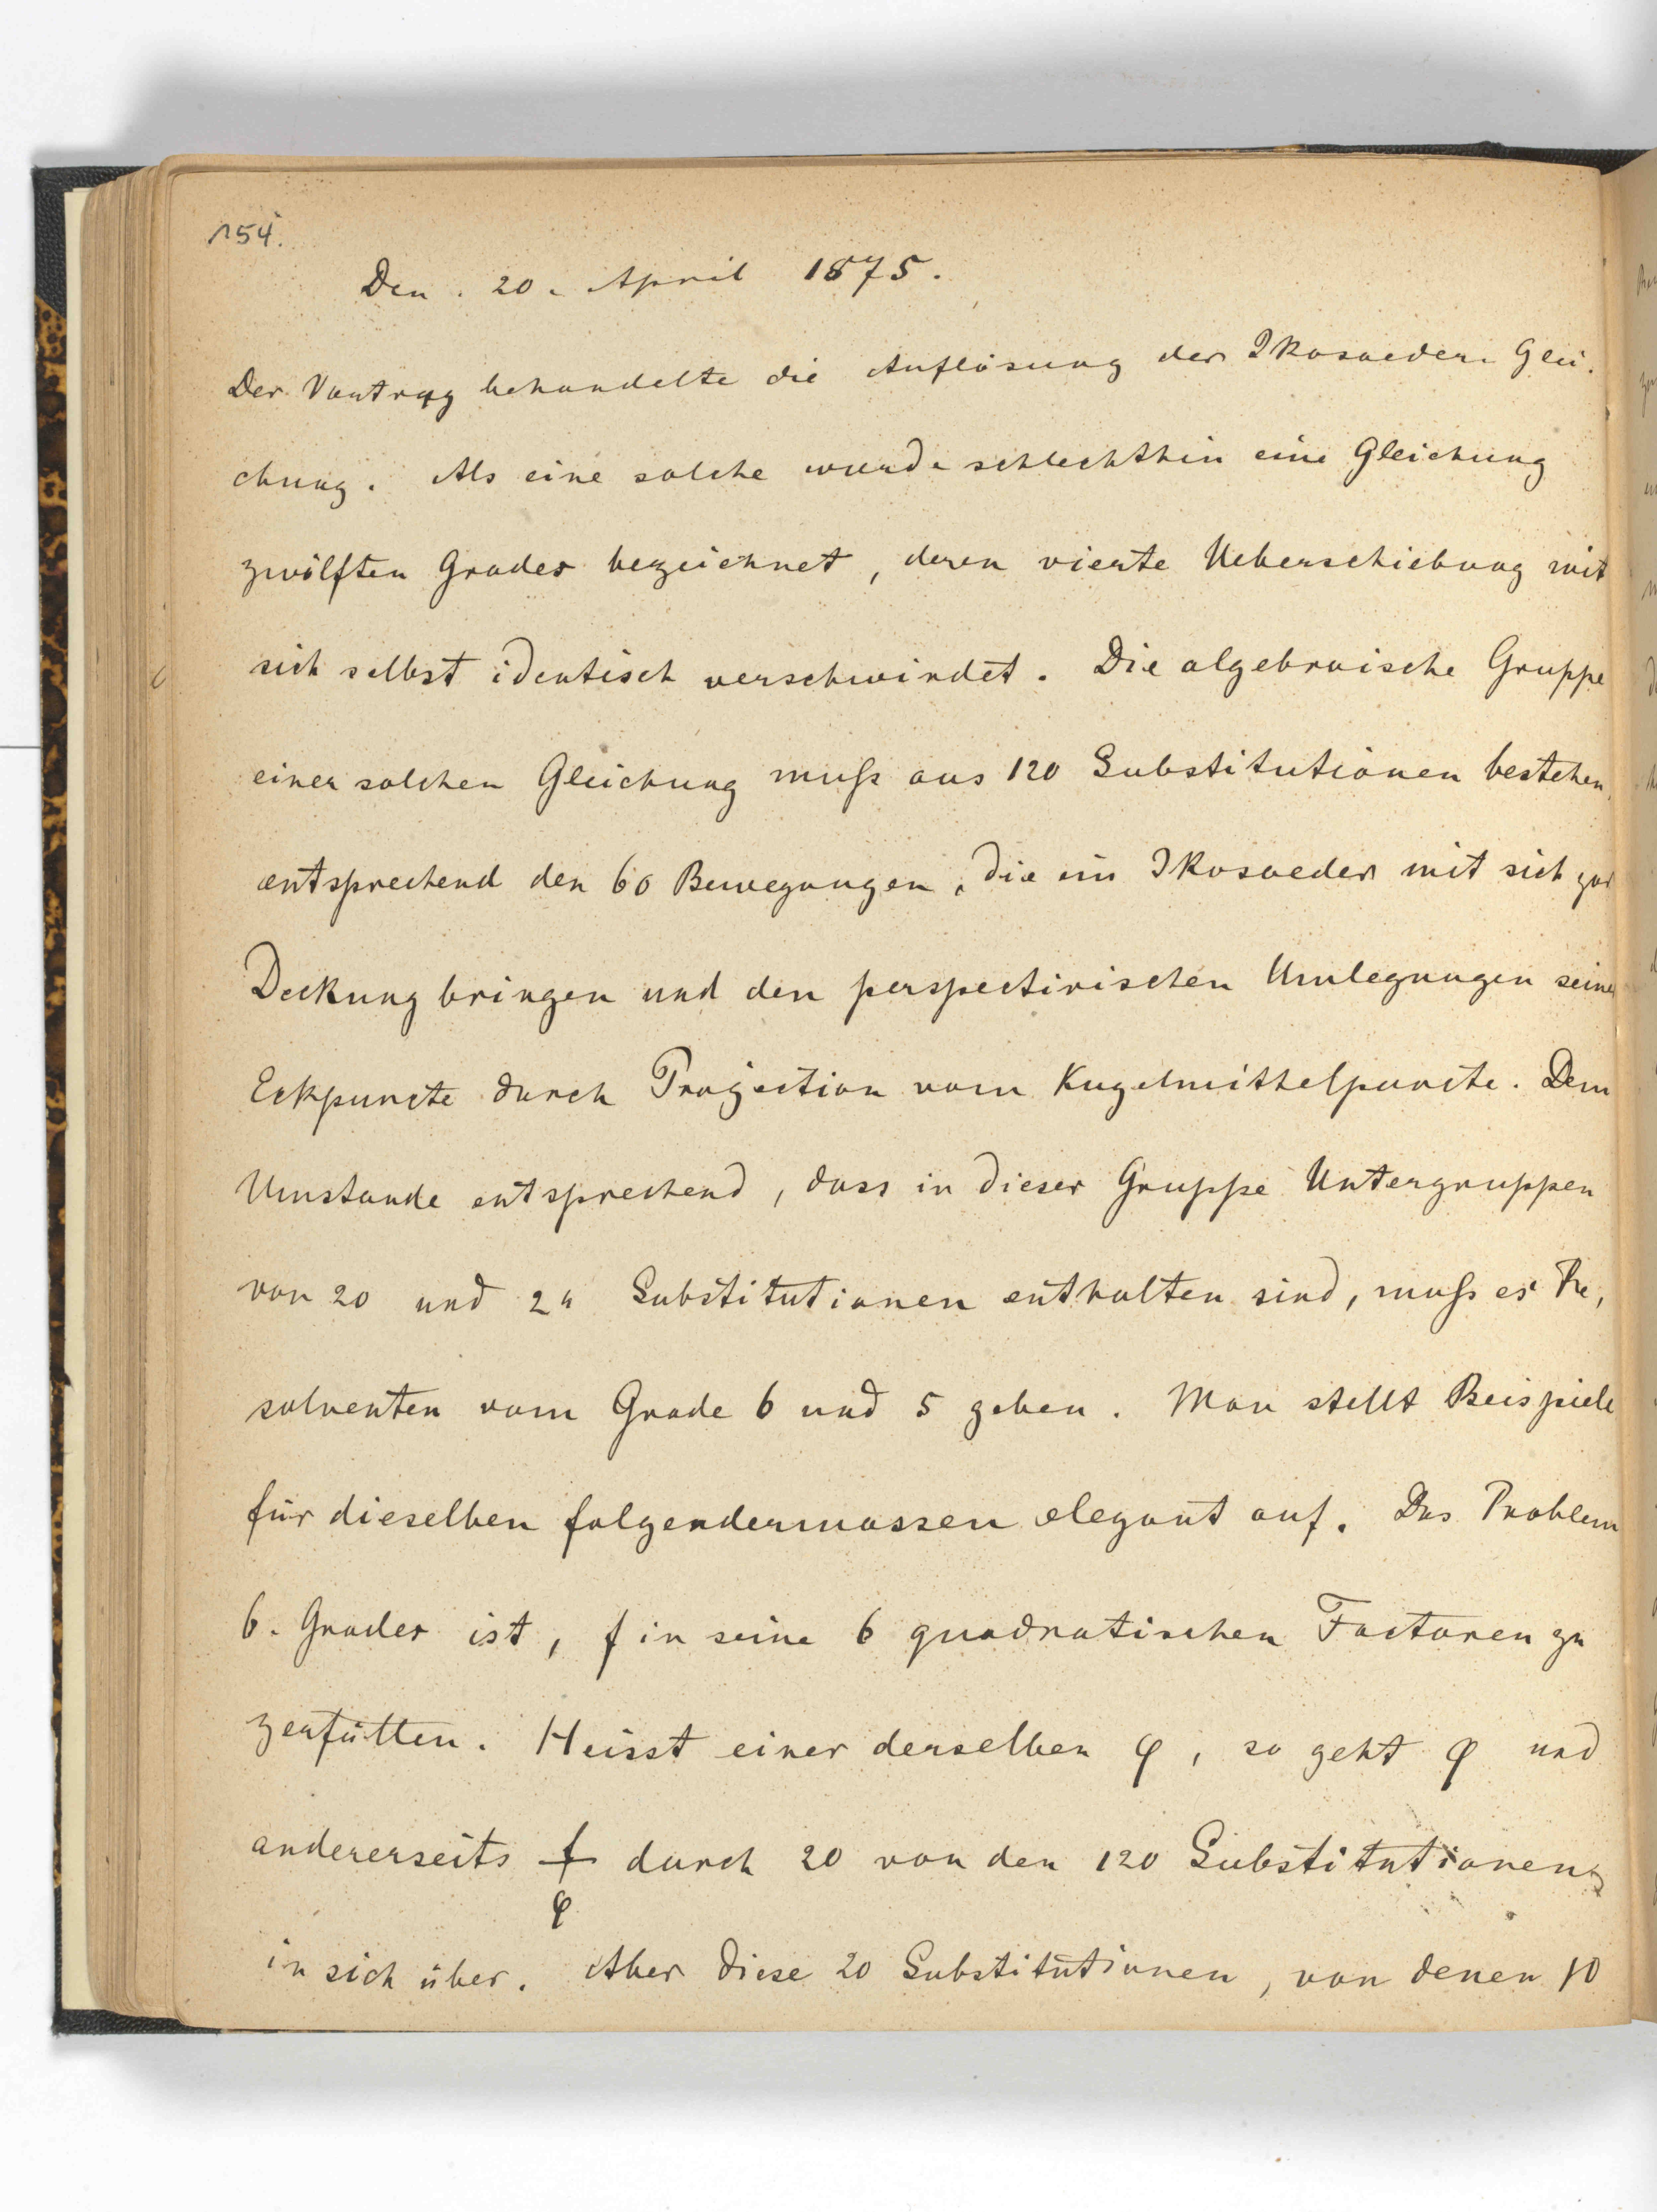 154.
Den. 20. April 1875.
Der Vortrag behandelte die Auflösung der Ikosaeder-Glei-
chung. Als eine solche wurde schlechthin eine Gleichung
zwölften Grades bezeichnet, deren vierte Ueberschiebung mit
sich selbst identisch verschwindet. Die algebraische Gruppe
einer solchen Gleichung muß aus 120 Substitutionen bestehen,
entsprechend den 60 Bewegungen, die ein Ikosaeder mit sich zur
Deckung bringen und den perspectivischen Umlegungen seiner
Eckpuncte durch Projection vom Kugelmittelpuncte. Dem
Umstande entsprechend, dass in dieser Gruppe Untergruppen
von 20 und 24 Substitutionen enthalten sind, muß es Re-
solventen vom Grade 6 und 5 geben. Man stellt Beispiele
für dieselben folgendermassen elegant auf. Das Problem
6. Grades ist, f in seine 6 quadratischen Factoren zu
zerfällen. Heisst einer derselben φ, so geht φ und
andererseits f/φ durch 20 von den 120 Substitutionen
in sich über. Aber diese 20 Substitutionen, von denen 10